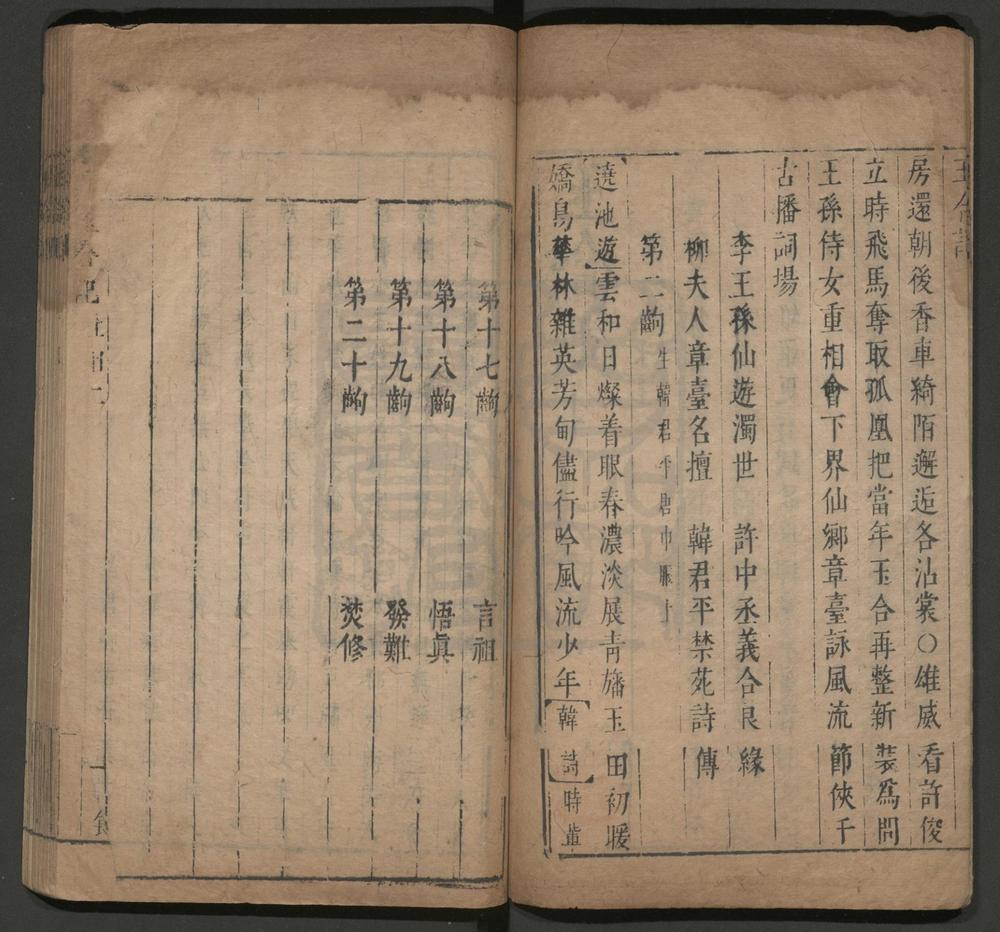 房還朝後香車綺陌邂逅各沾裳○雄威看許俊
立時飛馬奪取孤凰把當年玉合再整新裝爲問
王孫侍女重相會下界仙鄉章臺詠風流節俠千
古播詞場
李王孫仙遊濁世 許中丞義合良緣
柳夫人章臺名擅 韓君平禁苑詩傳
第二齣 生韓君平唐巾服上
【遶池遊】雲和日燦着眼春濃淡展青旛玉田初暖
嬌鳥華林雜英芳甸儘行吟風流少年【韓詩】時輩
第十七齣 言祖
第十八齣 悟真
第十九齣 發難
第二十齣 焚修